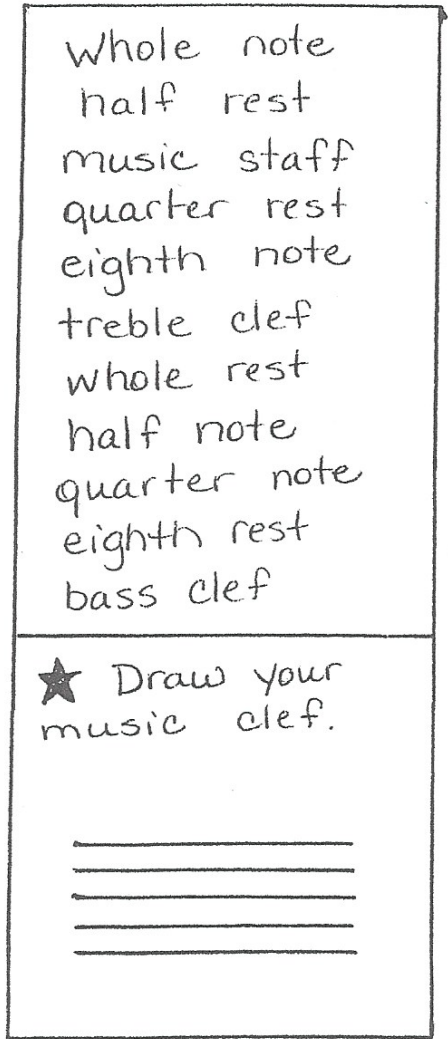 whole note
half rest
music staff
quarter rest
eighth note
treble clef
whole rest
half note
quarter note
eighth rest
bass clef
★ Draw your
music clef.